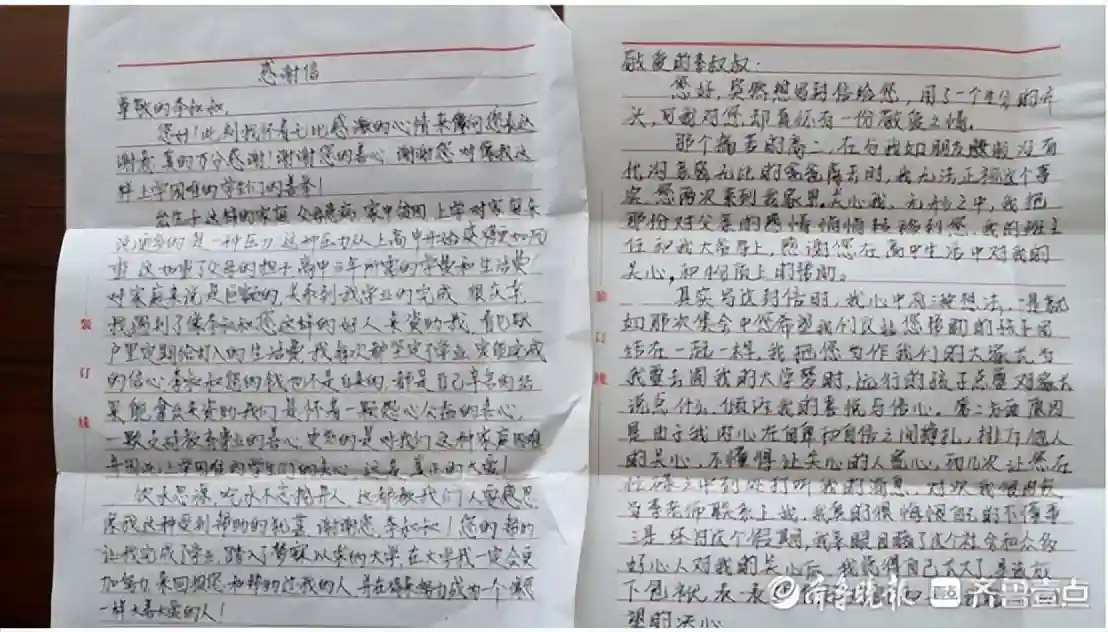 感谢信
尊敬的李叔叔,
您好!此刻我怀着无比感激的心情来像向您表达
谢意,真的万分感谢!谢谢您的善心,谢谢您对像我这
样上学困难的学生们的善举!
出生于这样的家庭,父母患病,家中贫困,上学对家里来
说更多的是一种压力,这种压力从上高中开始变得更加沉
重,这加重了父母的担子,高中三年所需的学费和生活费
对家庭来说是巨额的,关系到我学业的完成,很庆幸,
我遇到了像李叔叔您这样的好人来资助我,看见账
户里定期给打入的生活费,我每次都坚定了学业定能完成
的信心,李叔叔您的钱也不是白来的,都是自己辛苦的结
果,能拿出来资助我们是怀着一颗
一颗支持教育事业的善心,更重的是对我们这种家庭困难
上学困难的学生们的关心,这是真正的大爱!
饮水思源,吃水不忘挖井人,这都教我们人要感恩
我这种受到帮助的
谢谢您,李叔叔!您的帮助
让我完成了学业,踏入了梦寐以求的大学,在大学我一定会更
加努力,来回报您和帮助过我的人,并在将来努力成为一个像您
一样大善大爱的人!
敬爱的李叔叔:
您好,突然想写封信给您,用了一个生份的开
头,可我对您却真怀有一份敬爱之情。
那个痛苦的高二,在与我如朋友般般没有
代沟亲密无比的爸爸离去时,我无法正视这个事
实,您两次来到我家里,关心我,无形之中,我把
那份对父亲的感情悄悄转移到您、我的班主
任和我大爷身上,感谢您在高中生活中对我的
关心,和物质上的帮助。
其实写这封信时,我心中有三种想法,一是就
如那次集会中您希望我们良好您帮助的孩子团
结在一起一样,我把您当作我们的大家长,当
我要去圆我的大学梦时,远行的孩子总要对家长
说点什么,倾诉我的喜悦与信心。第二方面原因
是由于我内心在自卑和自信之间挣扎,排斥他人
的关心,不懂得让关心的人宽心,初几次让您在
忙碌之中到处打听我的消息,对次我很内疚
当李老师联系上我,我真的很悔恨自己的不懂事
三是,经过这个假期,我亲眼目睹了这个社会和众多
好心人对我的关心后,我觉得自己长大了,要放
下包袱,表一表
望的决心
装
订
线
装
订
线
齐鲁晚报
齐鲁壹点